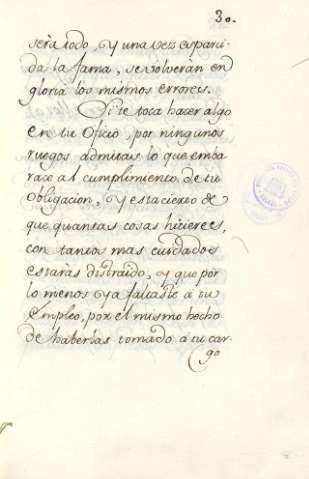 30.
será todo, y una vez esparci-
da la fama, se volverán en
gloria los mismos errores.
Si te toca hazer algo
en tu Oficio, por ningunos
ruegos admitas lo que emba
raze al cumplimiento de tu
Obligacion, y està cierto de
que quantas cosas hizieres,
con tantos mas cuidados
estaras distraido, y que por
lo menos ya faltaste à tu
Empleo, por el mismo hecho
de haberlas tomado à tu car-
go